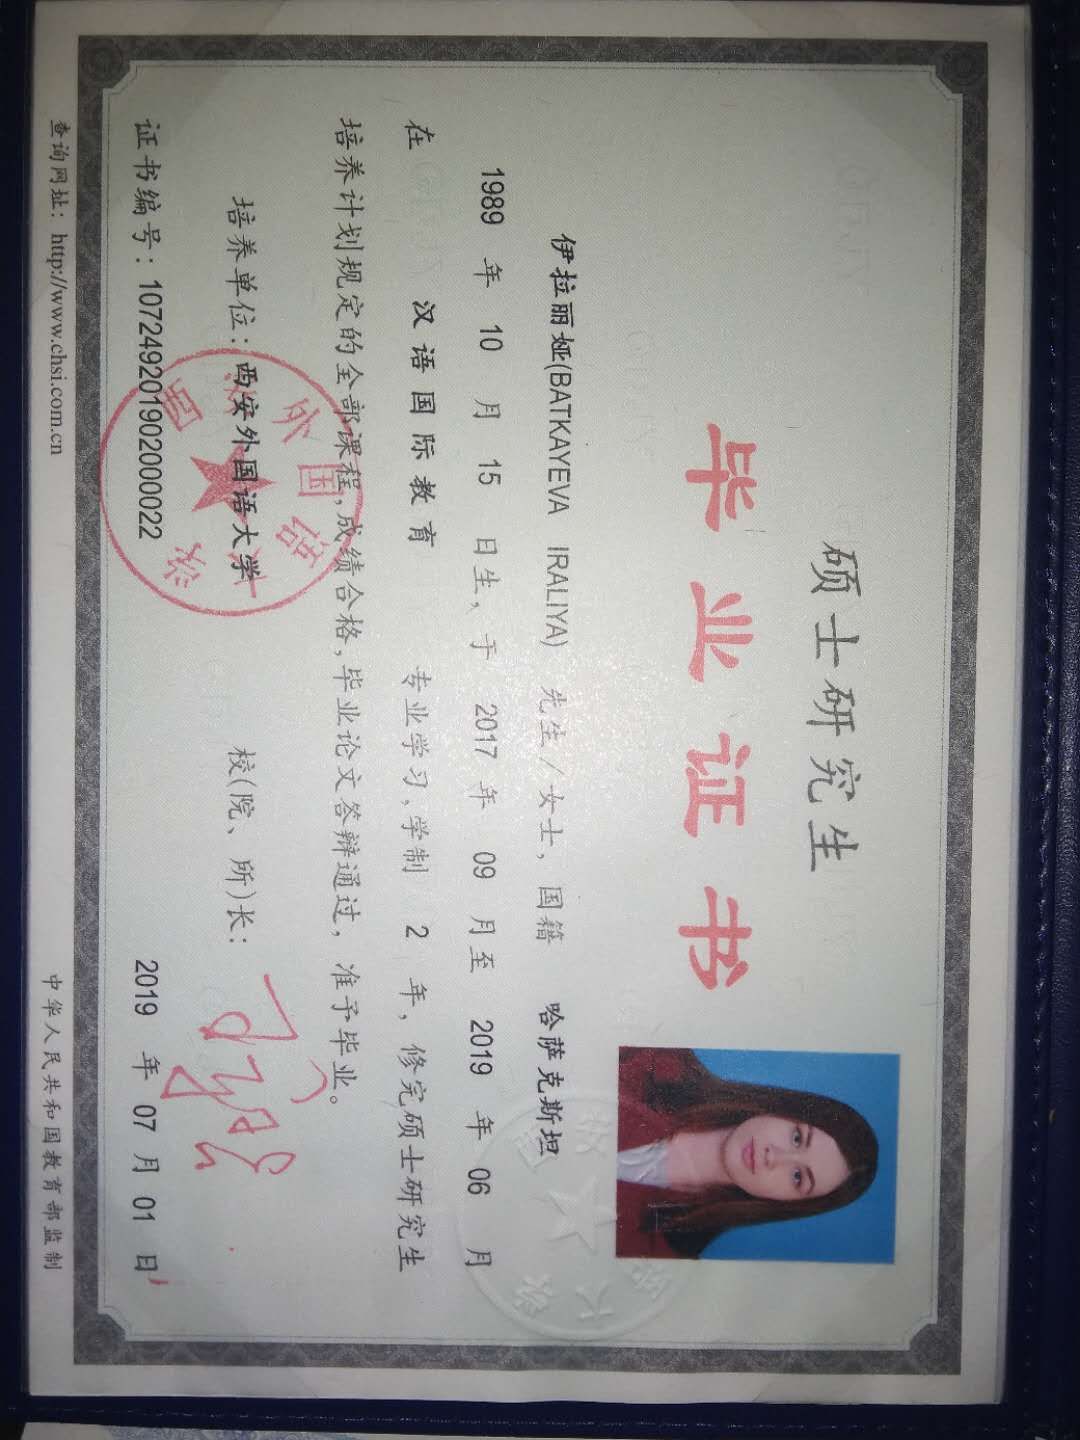 硕士研究生
毕业证书
伊拉丽娅(BATKAYEVA IRALIYA) 先生/女士，国籍 哈萨克斯坦
1989 年 10 月 15 日生，于 2017 年 09 月至 2019 年 06 月
在 汉语国际教育 专业学习，学制 2 年，修完硕士研究生
培养计划规定的全部课程，成绩合格，毕业论文答辩通过，准予毕业。
培养单位：西安外国语大学 校(院、所)长：
证书编号：107249201902000022 2019 年 07 月 01 日
查询网址：http://www.chsi.com.cn 中华人民共和国教育部监制